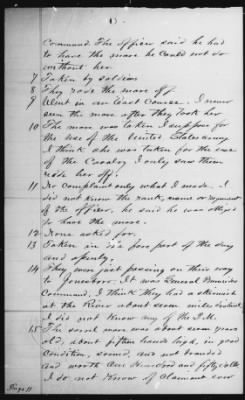 Command. The officer said he had
to have the mare he could not do
without her
7 Taken by soldiers
8 They rode the mare off
9 Went in an East Course. I never
seen the mare after they took her
10 The mare was taken I suppose for
the use of the United States army
I think she was taken for the use
of the Cavalry I only saw them
ride her off.
11 No complaint only what I made. I
did not know the rank, name or regiment
of the officer, he said he was obliged
to have the mare.
12 None asked for.
13 Taken in the fore part of the day
and openly.
14 They were just passing on their way
to Jonesboro. It was General
Command. I think they had a skirmish
at the River about seven miles
I did not know any of the
15 The sorrel mare was about seven years
old, about fifteen hands high, in good
Condition, sound, and not branded
and worth One Hundred and fifty dollars
I do not know of claimant ever
Page 11